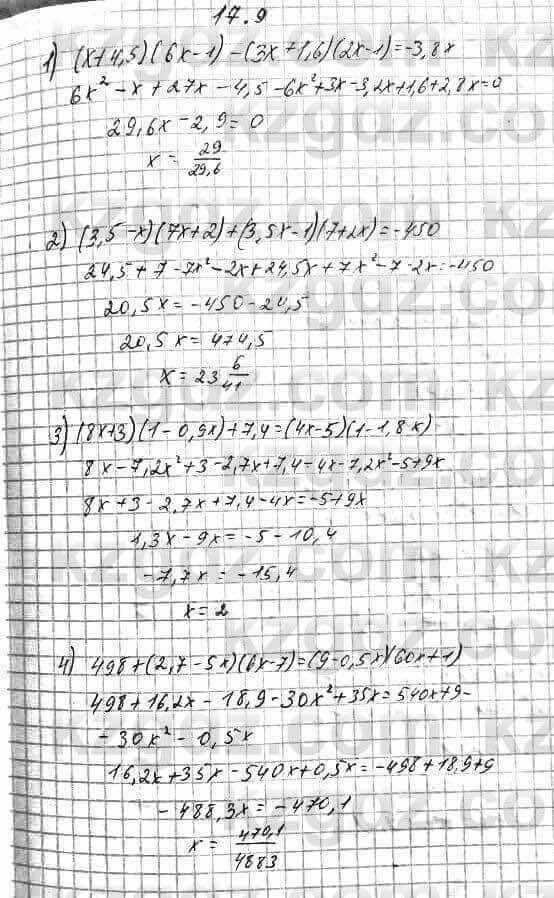 17.9
1) (x+4,5)(6x-1)-(3x+1,6)(2x-1)=-3,8x
6x²-x+27x-4,5-6x²+3x-3,2x+1,6+2,8x=0
29,6x-2,9=0
x= 29/29,6
2) (3,5-x)(7x+2)+(3,5x-1)(7+2x)=-450
24,5+7-7x²-2x+24,5x+7x²-7-2x=-450
20,5x=-450-24,5
20,5x=474,5
x=23 6/41
3) (8x+3)(1-0,9x)+7,4=(4x-5)(1-1,8x)
8x-7,2x²+3-2,7x+7,4-4x-7,2x²-5+9x
8x+3-2,7x+7,4-4x=-5+9x
1,3x-9x=-5-10,4
-7,7x=-15,4
x=2
4) 498+(2,7-5x)(6x-7)=(9-0,5x)(60x+1)
498+16,2x-18,9-30x²+35x=540x+9-
-30x²-0,5x
16,2x+35x-540x+0,5x=-498+18,9+9
-488,3x=-470,1
x= 470,1/4883